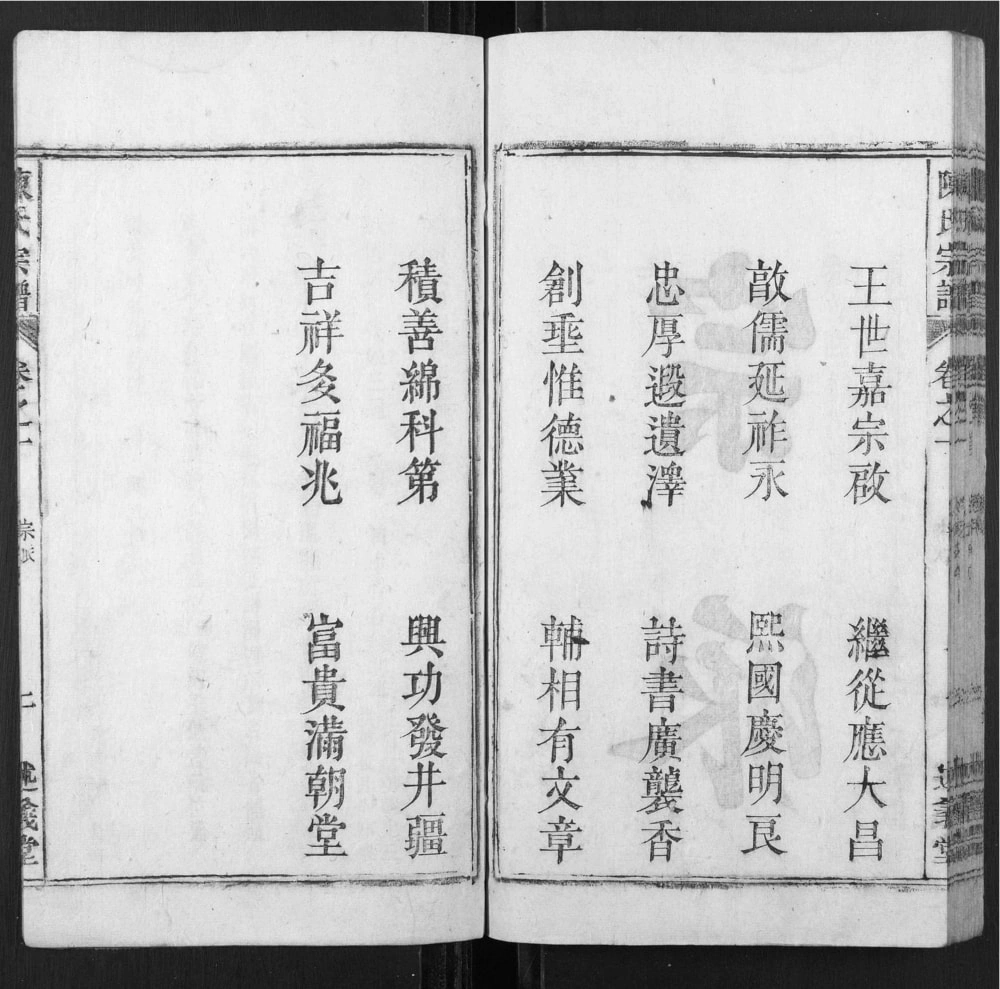 陳氏宗譜 卷之一
王世嘉宗啟 繼從應大昌
啟儒延祚永 熙國慶明良
忠厚遐遺澤 詩書廣襲香
創垂惟德業 輔相有文章
積善綿科第 興功發井疆
吉祥多福兆 富貴滿朝堂
陳氏宗譜 卷之一 述義堂